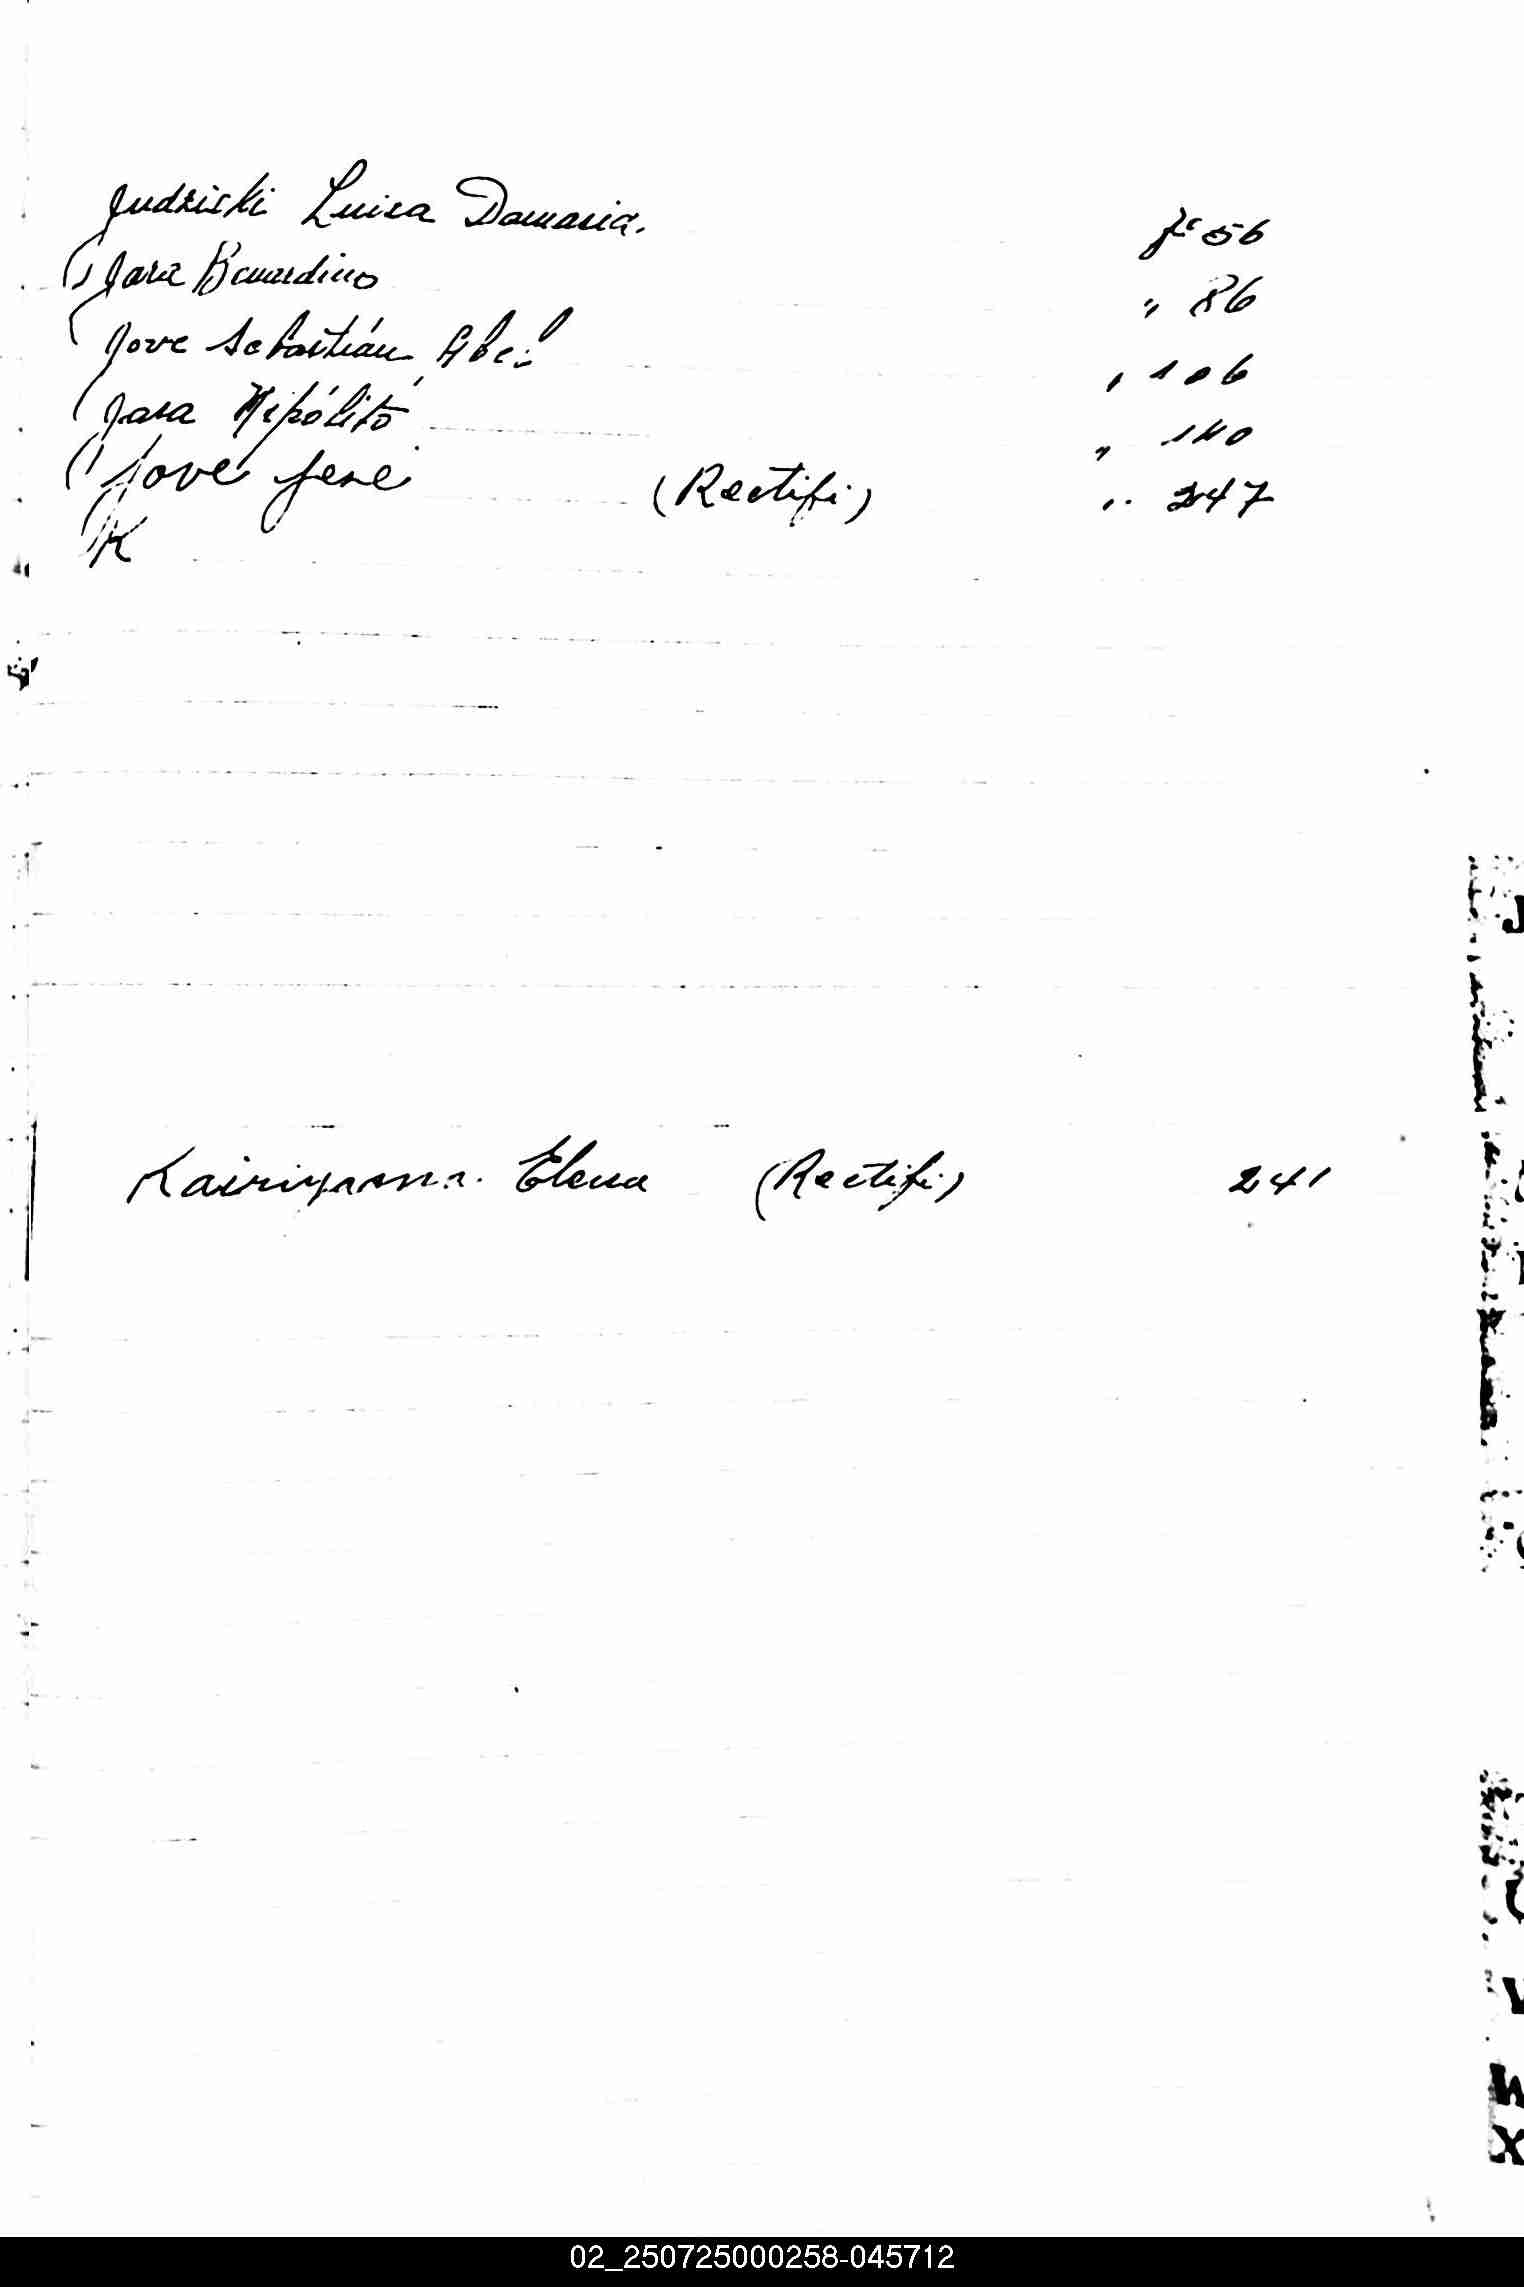 Judziski Luisa Damasia. fº 56
Jara Bernardino " 86
Jove Sebastián Abel " 106
Jara Hipólito " 140
Jove José (Rectifi) " 247
K
Kairiyama Elena (Rectifi) 241
J
V
W
X
02_250725000258-045712